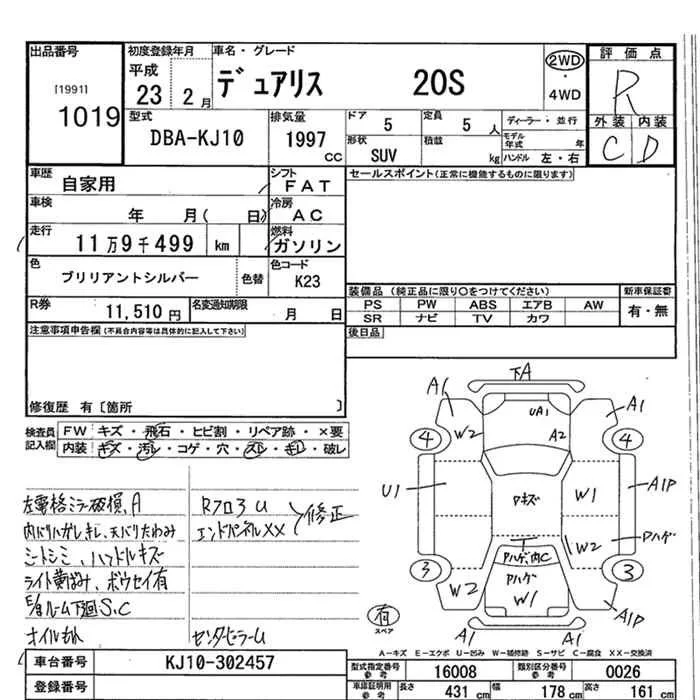 出品番号
[1991]
1019
初度登録年月
平成
23 2月
車名・グレード
デュアリス 20S
2WD
・
4WD
評価点
R
外装 内装
C D
型式
DBA-KJ10
排気量
1997
CC
ドア
5
定員
5 人
形状
SUV
積載
kg
ディーラー・並行
モデル年式 年
ハンドル 左・右
車歴
自家用
シフト
FAT
車検
年 月( 日)
冷房
AC
走行
11万9千499 km
燃料
ガソリン
色
ブリリアントシルバー
色替
色コード
K23
R券
11,510 円
名変通知期限
月 日
セールスポイント(正常に機能するものに限ります)
装備品(純正品に限り○をつけてください)
PS PW ABS エアB AW
SR ナビ TV カワ
新車保証書
有・無
後日品
注意事項申告欄(不具合内容等は具体的に記入して下さい)
修復歴 有〔箇所 〕
検査員
記入欄
FW キズ・飛石・ヒビ割・リペア跡・×要
内装 キズ・汚レ・コゲ・穴・スレ・キレ・破レ
左電格ミラー破損、A
内バリハガレ、キレ、天バリたわみ
シートシミ、ハンドルキズ
ライト黄ばみ、ボウセイ有
E/gルーム下廻S、C
オイルもれ
Rフロ3 U
エンドパネルXX
修正
センターピラーU
下A
A1
A1
UA1
W2
A2
4
4
U1
Pキズ
W1
A1P
Pハゲ
W2
Pハゲ、内C
Pハゲ
W1
3
3
W2
A1P
有
スペア
A1
A1
A－キズ E－エクボ U－凹み W－補修跡 S－サビ C－腐食 XX－交換済
車台番号
KJ10-302457
登録番号
型式指定番号
参考
16008
類別区分番号
参考
0026
車庫証明用
参考
長さ
431 cm
幅
178 cm
高さ
161 cm